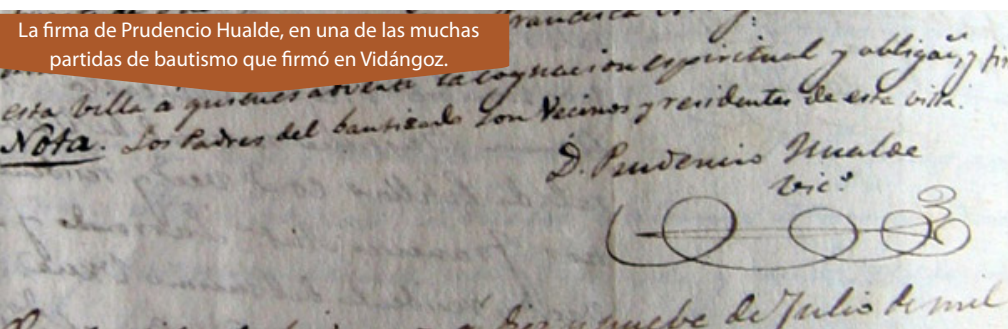 La firma de Prudencio Hualde, en una de las muchas
partidas de bautismo que firmó en Vidángoz.
Francisca
esta villa a quienes advertí la cognacion espiritual y obligaⁿ, y
Nota. Los Padres del bautizado son Vecinos y residentes de esta villa.
D. Prudencio Hualde
Vicº
de Julio de mil